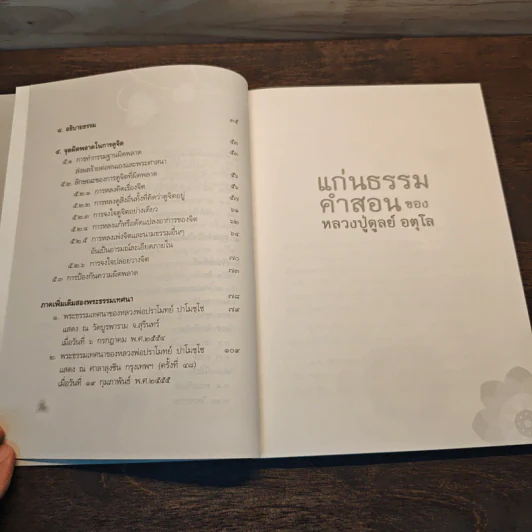 ๔. อธิบายธรรม ๓๕
๕. จุดผิดพลาดในการดูจิต
๕.๑ การทำกรรมฐานผิดพลาด
ส่งผลร้ายต่อตนเองและพระศาสนา
๕.๒ ลักษณะของการดูจิตที่ผิดพลาด
๕.๒.๑ การหลงคิดเรื่องจิต
๕.๒.๒ การหลงดูสิ่งอื่นทั้งที่คิดว่าดูจิตอยู่
๕.๒.๓ การจงใจดูจิตอย่างเดียว
๕.๒.๔ การหลงแก้หรือดัดแปลงอาการของจิต
๕.๒.๕ การหลงเพ่งจิตและนามธรรมอื่นๆ ๖๔
อันเป็นอารมณ์ละเอียดภายใน
๕.๒.๖ การจงใจปล่อยวางจิต ๗๐
๕.๓ การป้องกันความผิดพลาด ๗๓
ภาคเพิ่มเติมสองพระธรรมเทศนา ๗๘
๑. พระธรรมเทศนาของหลวงพ่อปราโมทย์ ปาโมชฺโช ๗๙
แสดง ณ วัดบูรพาราม จ.สุรินทร์
เมื่อวันที่ ๖ กรกฎาคม พ.ศ.๒๕๕๔
๒. พระธรรมเทศนาของหลวงพ่อปราโมทย์ ปาโมชฺโช ๑๐๙
แสดง ณ ศาลาลุงชิน กรุงเทพฯ (ครั้งที่ ๔๘)
เมื่อวันที่ ๑๙ กุมภาพันธ์ พ.ศ.๒๕๕๕
แก่นธรรม
คำสอน ของ
หลวงปู่ดูลย์ อตุโล